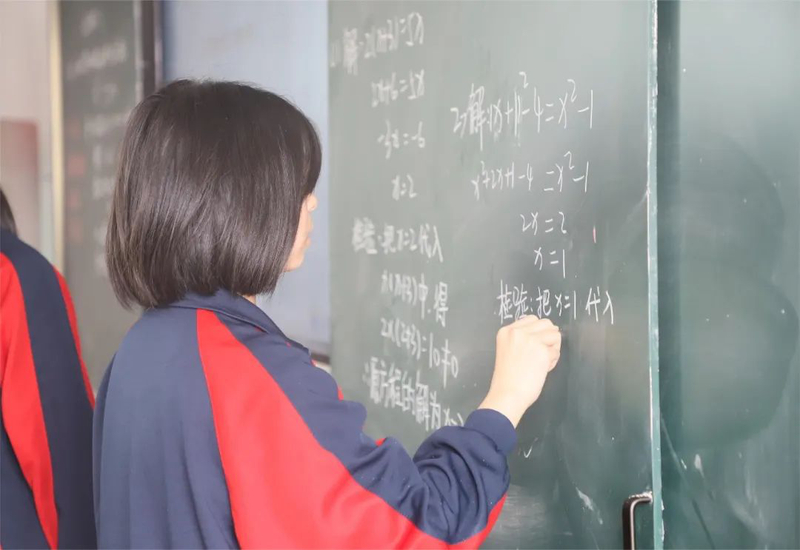 解:2(x+3)=5x
2x+6=5x
-3x=-6
x=2
检验:把x=2代入
x(x+3)中,得
2x(2+3)=10≠0
∴原方程的解为x=2
2)解:(x+1)²-4=x²-1
x²+2x+1-4=x²-1
2x=2
x=1
检验:把x=1代入